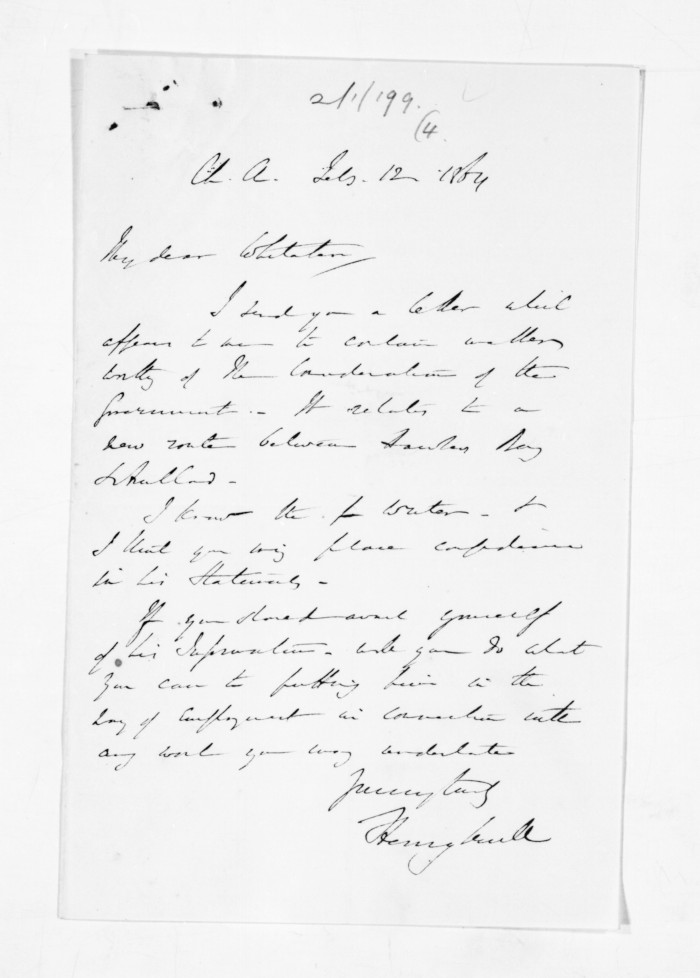 2/1/199.
(4.
Ch. Ch. Feb. 12 1864
My dear Whitaker
I send you a letter which
appears to me to contain matters
worthy of the Consideration of the
Government. - It relates to a
new route between Hawkes Bay
& Auckland -
I know the writer - &
I think you may place confidence
in his Statements -
If you should avail yourself
of his Information - will you do what
you can to putting him in the
way of employment in connection with
any work you may undertake
Yours very truly
Henry Sewell